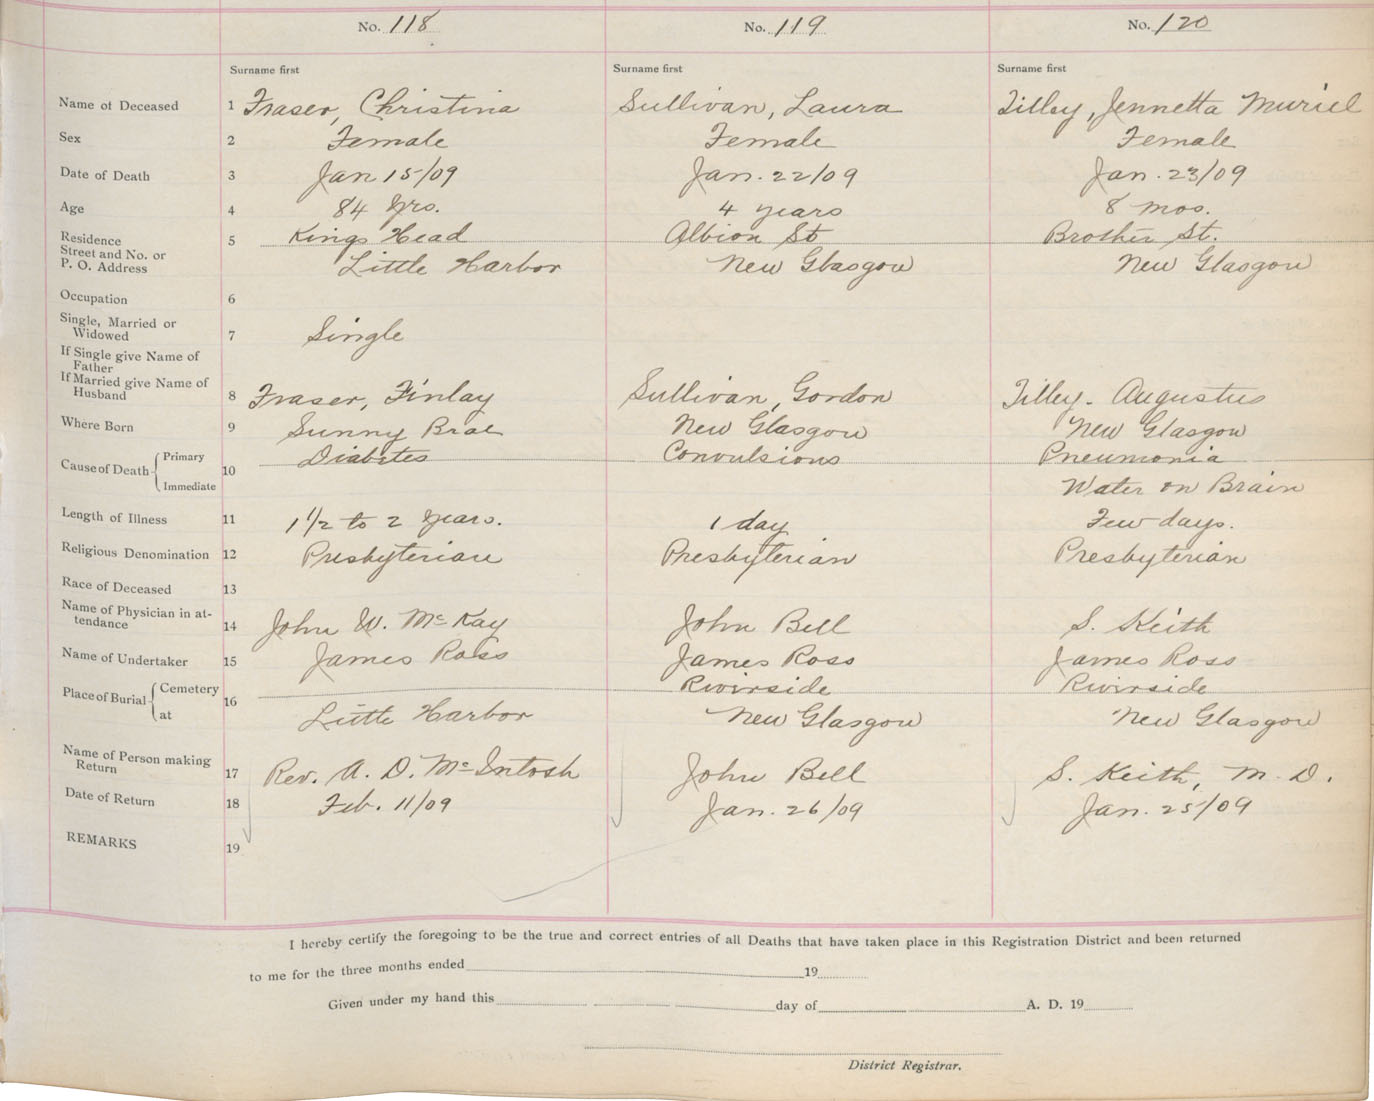 No. 118 No. 119 No. 120
Surname first Surname first Surname first
Name of Deceased 1 Fraser, Christina Sullivan, Laura Tilley, Jennetta Muriel
Sex 2 Female Female Female
Date of Death 3 Jan 15/09 Jan. 22/09 Jan. 23/09
Age 4 84 yrs. 4 years 8 mos.
Residence 5 Kings Head Albion St Brother St.
Street and No. or
P. O. Address Little Harbor New Glasgow New Glasgow
Occupation 6
Single, Married or
Widowed 7 Single
If Single give Name of
Father
If Married give Name of
Husband 8 Fraser, Finlay Sullivan, Gordon Tilley. Augustus
Where Born 9 Sunny Brae New Glasgow New Glasgow
Cause of Death Primary 10 Diabetes Convulsions Pneumonia
Immediate Water on Brain
Length of Illness 11 1 1/2 to 2 years. 1 day Few days.
Religious Denomination 12 Presbyterian Presbyterian Presbyterian
Race of Deceased 13
Name of Physician in at-
tendance 14 John W. McKay John Bell S. Keith
Name of Undertaker 15 James Ross James Ross James Ross
Place of Burial Cemetery 16 Riverside Riverside
at Little Harbor New Glasgow New Glasgow
Name of Person making
Return 17 Rev. A. D. McIntosh John Bell S. Keith, M. D.
Date of Return 18 Feb. 11/09 Jan. 26/09 Jan. 25/09
REMARKS 19
I hereby certify the foregoing to be the true and correct entries of all Deaths that have taken place in this Registration District and been returned
to me for the three months ended 19
Given under my hand this day of A. D. 19
District Registrar.